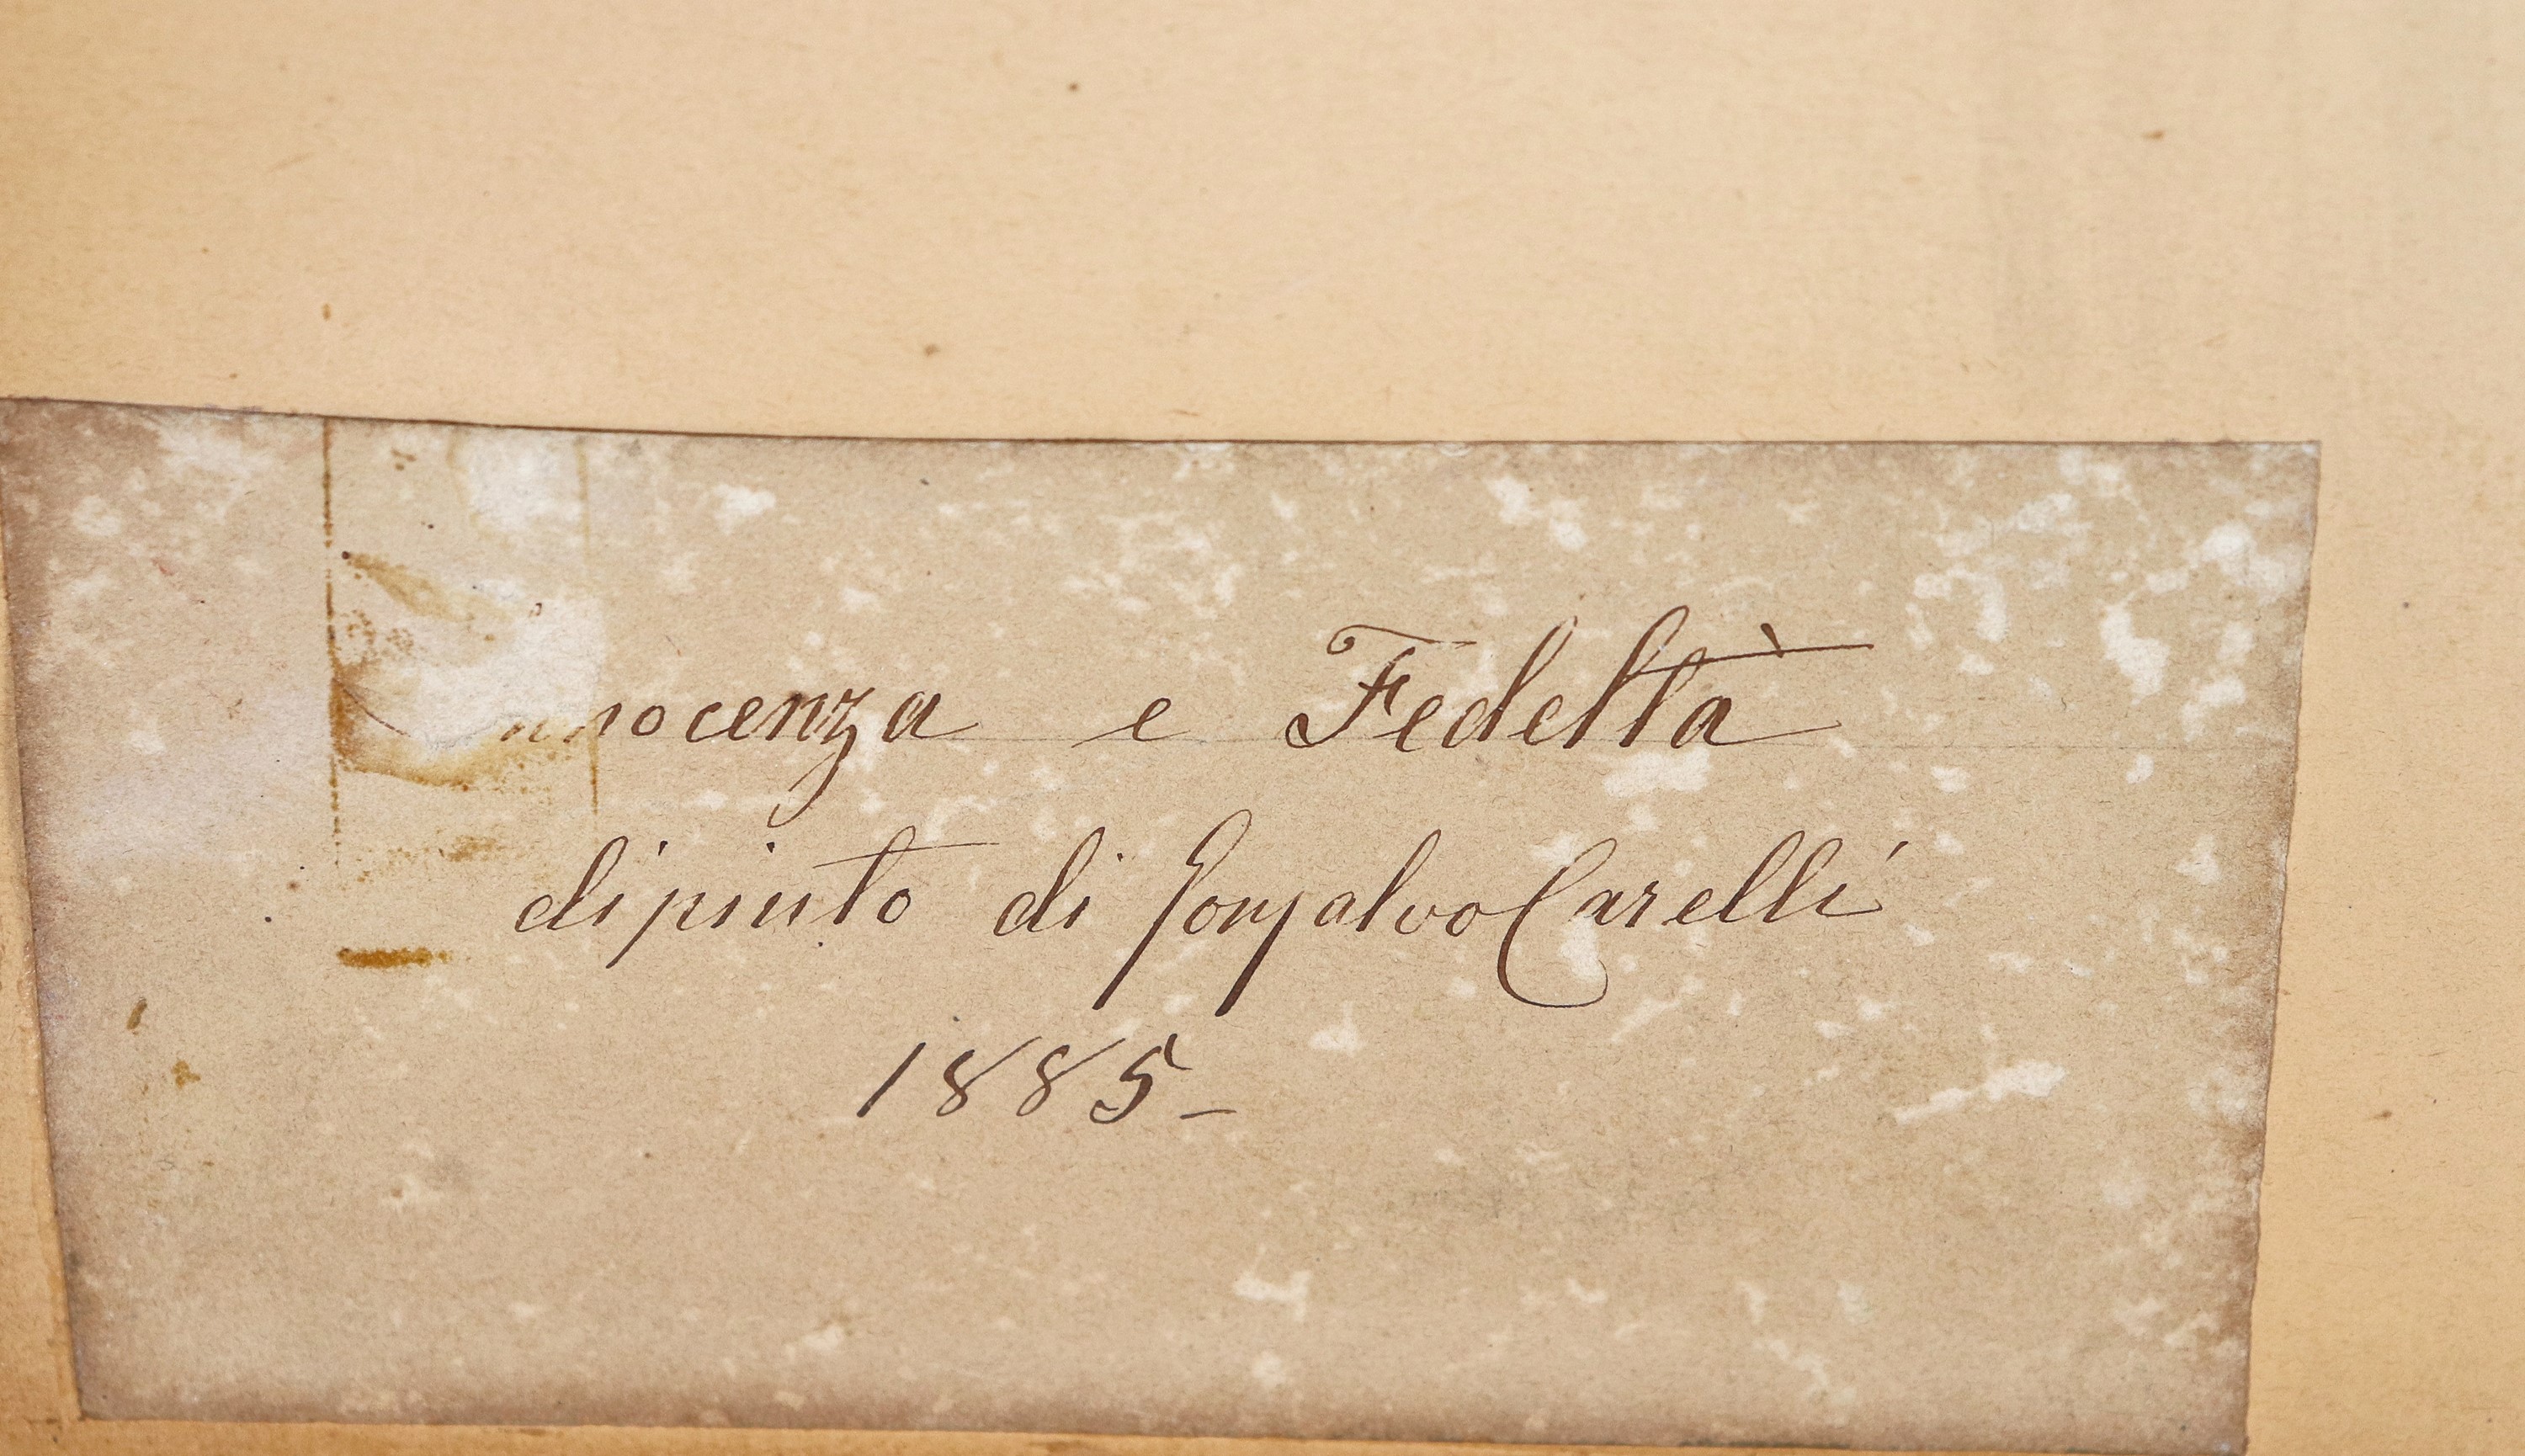 Innocenza e Fedeltà
dipinto di Gonzalvo Carelli
1885-